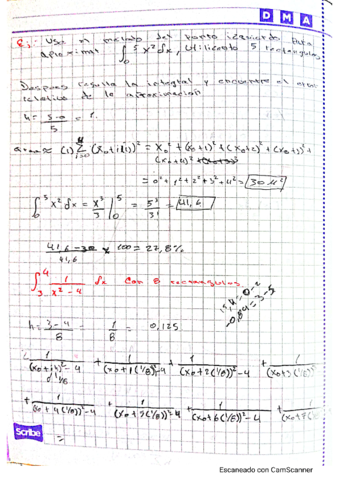 D M A
R: Usa el metodo del punto izquierdo para
aproximar ∫₀⁵ x² dx, utilizando 5 rectangulos
Despues resuelva la integral y encuentre el error
relativo de la aproximacion
h = (5-0)/5 = 1
area ≈ (1) Σ (x₀+i(1))² = x₀² + (x₀+1)² + (x₀+2)² + (x₀+3)² +
(x₀+4)²
= 0²+1²+2²+3²+4² = 30 u²
∫₀⁵ x² dx = x³/3 |₀⁵ = 5³/3 = 41,6
(41,6-30)/41,6 × 100 = 27,8%
∫₃⁴ 1/(x²-4) dx con 8 rectangulos
h = (3-4)/8 = 1/8 = 0,125
1/((x₀+i4)²-4) + 1/((x₀+1(1/8))²-4) + 1/((x₀+2(1/8))²-4) + 1/((x₀+3(1/8
+ 1/((x₀+4(1/8))²-4) + 1/((x₀+5(1/8))²-4) + 1/((x₀+6(1/8))²-4) + 1/((x₀+7(1/8
=
Scribe
Escaneado con CamScanner